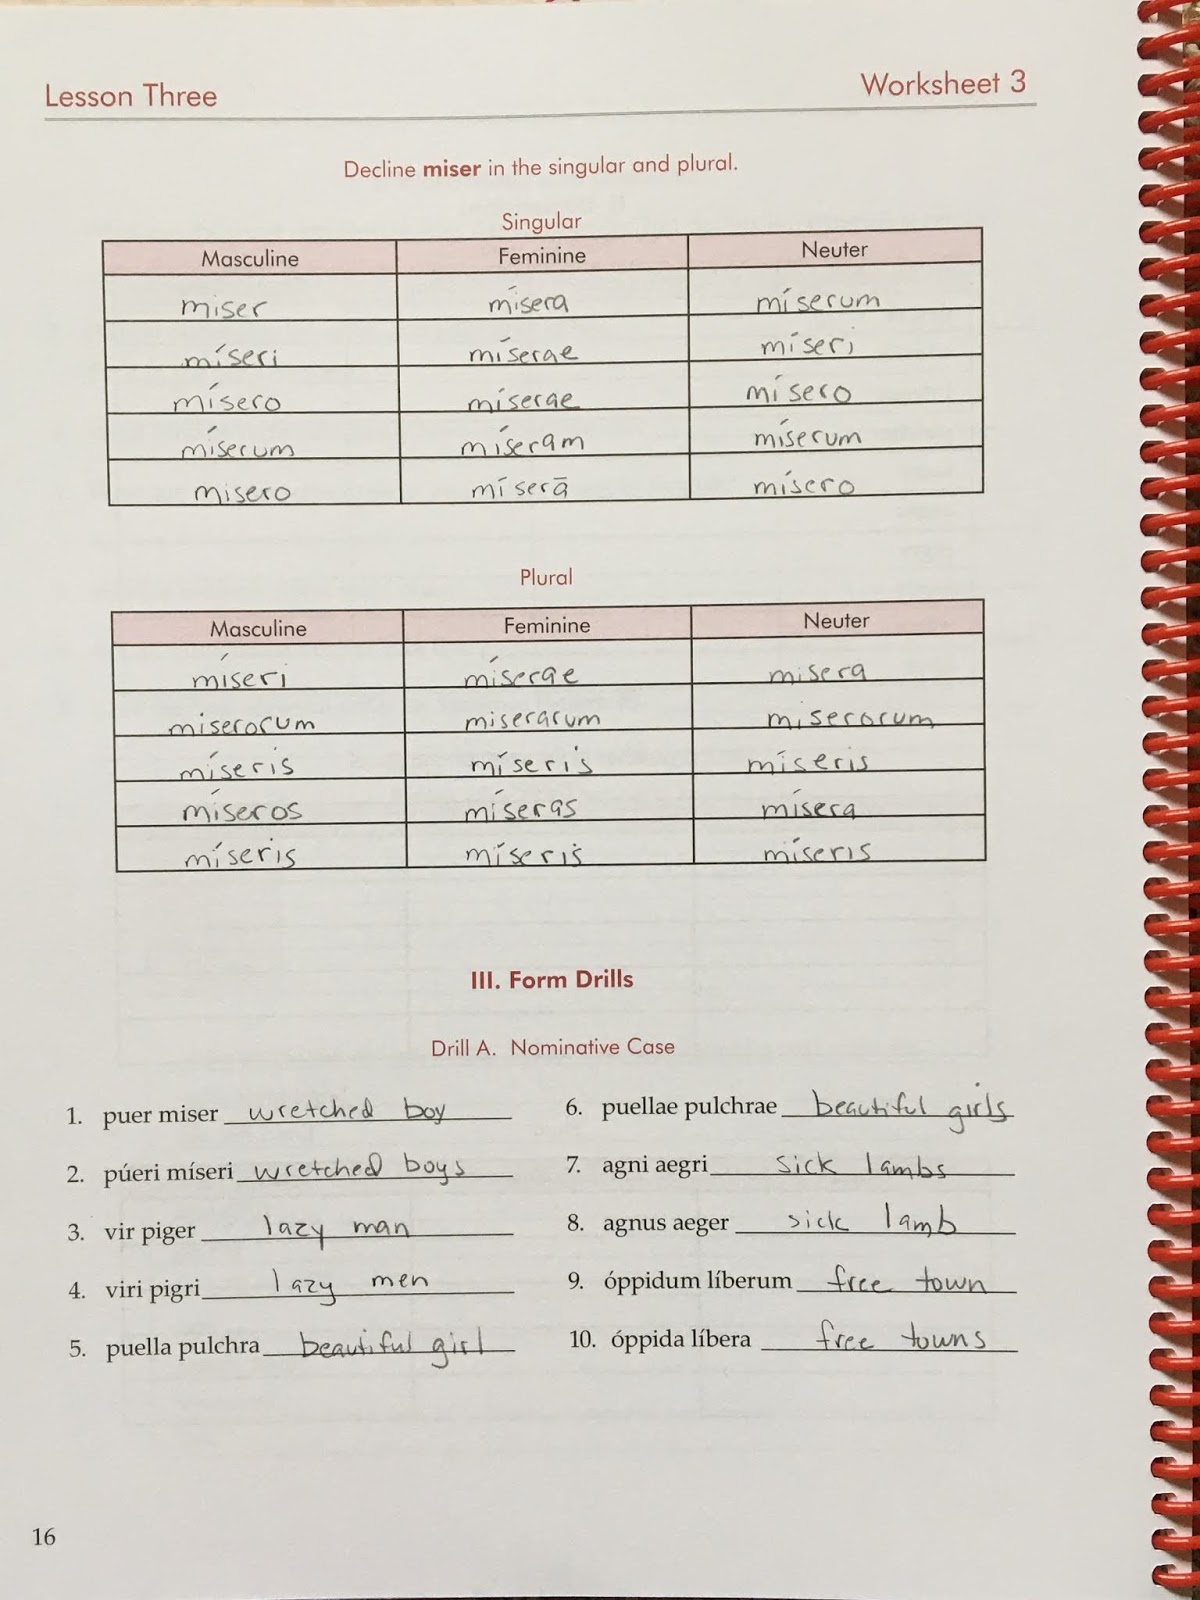 Lesson Three Worksheet 3
Decline miser in the singular and plural.
Singular
Masculine Feminine Neuter
miser mísera míserum
míseri míserae míseri
mísero míserae mísero
míserum míseram míserum
misero míserā mísero
Plural
Masculine Feminine Neuter
míseri míserae misera
miserorum miserarum miserorum
míseris míseris míseris
míseros míseras mísera
míseris míseris míseris
III. Form Drills
Drill A. Nominative Case
1. puer miser wretched boy
2. púeri míseri wretched boys
3. vir piger lazy man
4. viri pigri lazy men
5. puella pulchra beautiful girl
6. puellae pulchrae beautiful girls
7. agni aegri sick lambs
8. agnus aeger sick lamb
9. óppidum líberum free town
10. óppida líbera free towns
16